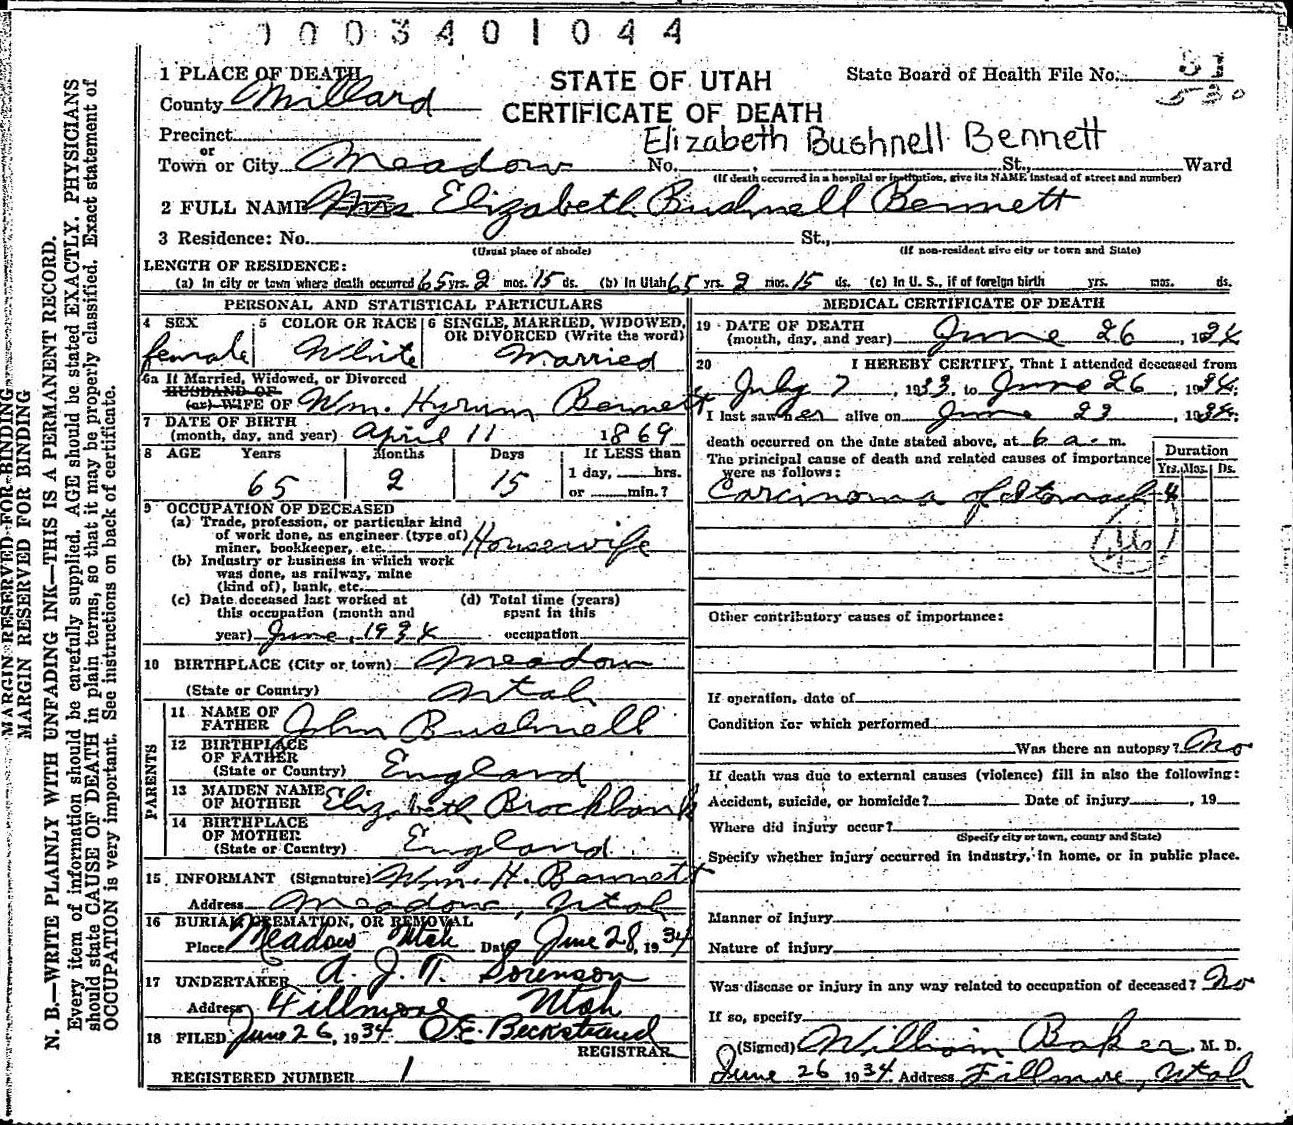 0003401044
1 PLACE OF DEATH
STATE OF UTAH
State Board of Health File No. 81
County Millard
530
CERTIFICATE OF DEATH
Precinct
Elizabeth Bushnell Bennett
or
Town or City Meadow No. , St., Ward
(If death occurred in a hospital or institution, give its NAME instead of street and number)
2 FULL NAME Mrs Elizabeth Bushnell Bennett
3 Residence: No. St.,
(Usual place of abode) (If non-resident give city or town and State)
LENGTH OF RESIDENCE:
(a) In city or town where death occurred 65 yrs. 2 mos. 15 ds. (b) In Utah 65 yrs. 2 mos. 15 ds. (c) In U. S., if of foreign birth yrs. mos. ds.
PERSONAL AND STATISTICAL PARTICULARS
4 SEX 5 COLOR OR RACE 6 SINGLE, MARRIED, WIDOWED,
OR DIVORCED (Write the word)
female White Married
6a If Married, Widowed, or Divorced
HUSBAND OF
(or) WIFE OF Wm. Hyrum Bennett
7 DATE OF BIRTH
(month, day, and year) April 11 1869
8 AGE Years Months Days If LESS than
1 day, hrs.
65 2 15 or min.?
9 OCCUPATION OF DECEASED
(a) Trade, profession, or particular kind
of work done, as engineer (type of)
miner, bookkeeper, etc. Housewife
(b) Industry or business in which work
was done, as railway, mine
(kind of), bank, etc.
(c) Date deceased last worked at (d) Total time (years)
this occupation (month and spent in this
year) June, 1934 occupation
10 BIRTHPLACE (City or town) Meadow
(State or Country) Utah
PARENTS
11 NAME OF
FATHER John Bushnell
12 BIRTHPLACE
OF FATHER
(State or Country) England
13 MAIDEN NAME
OF MOTHER Elizabeth Brockbank
14 BIRTHPLACE
OF MOTHER
(State or Country) England
15 INFORMANT (Signature) Wm. H. Bennett
Address Meadow, Utah
16 BURIAL, CREMATION, OR REMOVAL
Place Meadow Utah Date June 28, 1934
17 UNDERTAKER A. J. T. Sorenson
Address Fillmore Utah
18 FILED June 26, 1934 O.E. Beckstrand
REGISTRAR
REGISTERED NUMBER 1
MEDICAL CERTIFICATE OF DEATH
19 DATE OF DEATH
(month, day, and year) June 26, 1934
20 I HEREBY CERTIFY, That I attended deceased from
July 7, 1933, to June 26, 1934
I last saw her alive on June 23 1934
death occurred on the date stated above, at 6 a.m.
The principal cause of death and related causes of importance
were as follows:
Duration
Yrs. Mos. Ds.
Carcinoma of Stomach
46
Other contributory causes of importance:
If operation, date of
Condition for which performed
Was there an autopsy? No
If death was due to external causes (violence) fill in also the following:
Accident, suicide, or homicide? Date of injury , 19
Where did injury occur?
(Specify city or town, county and State)
Specify whether injury occurred in industry, in home, or in public place.
Manner of injury
Nature of injury
Was disease or injury in any way related to occupation of deceased? No
If so, specify
(Signed) William Baker, M. D.
June 26 1934 Address Fillmore, Utah
MARGIN RESERVED FOR BINDING
MARGIN RESERVED FOR BINDING
N. B.—WRITE PLAINLY WITH UNFADING INK—THIS IS A PERMANENT RECORD.
Every item of information should be carefully supplied. AGE should be stated EXACTLY. PHYSICIANS
should state CAUSE OF DEATH in plain terms, so that it may be properly classified. Exact statement of
OCCUPATION is very important. See instructions on back of certificate.